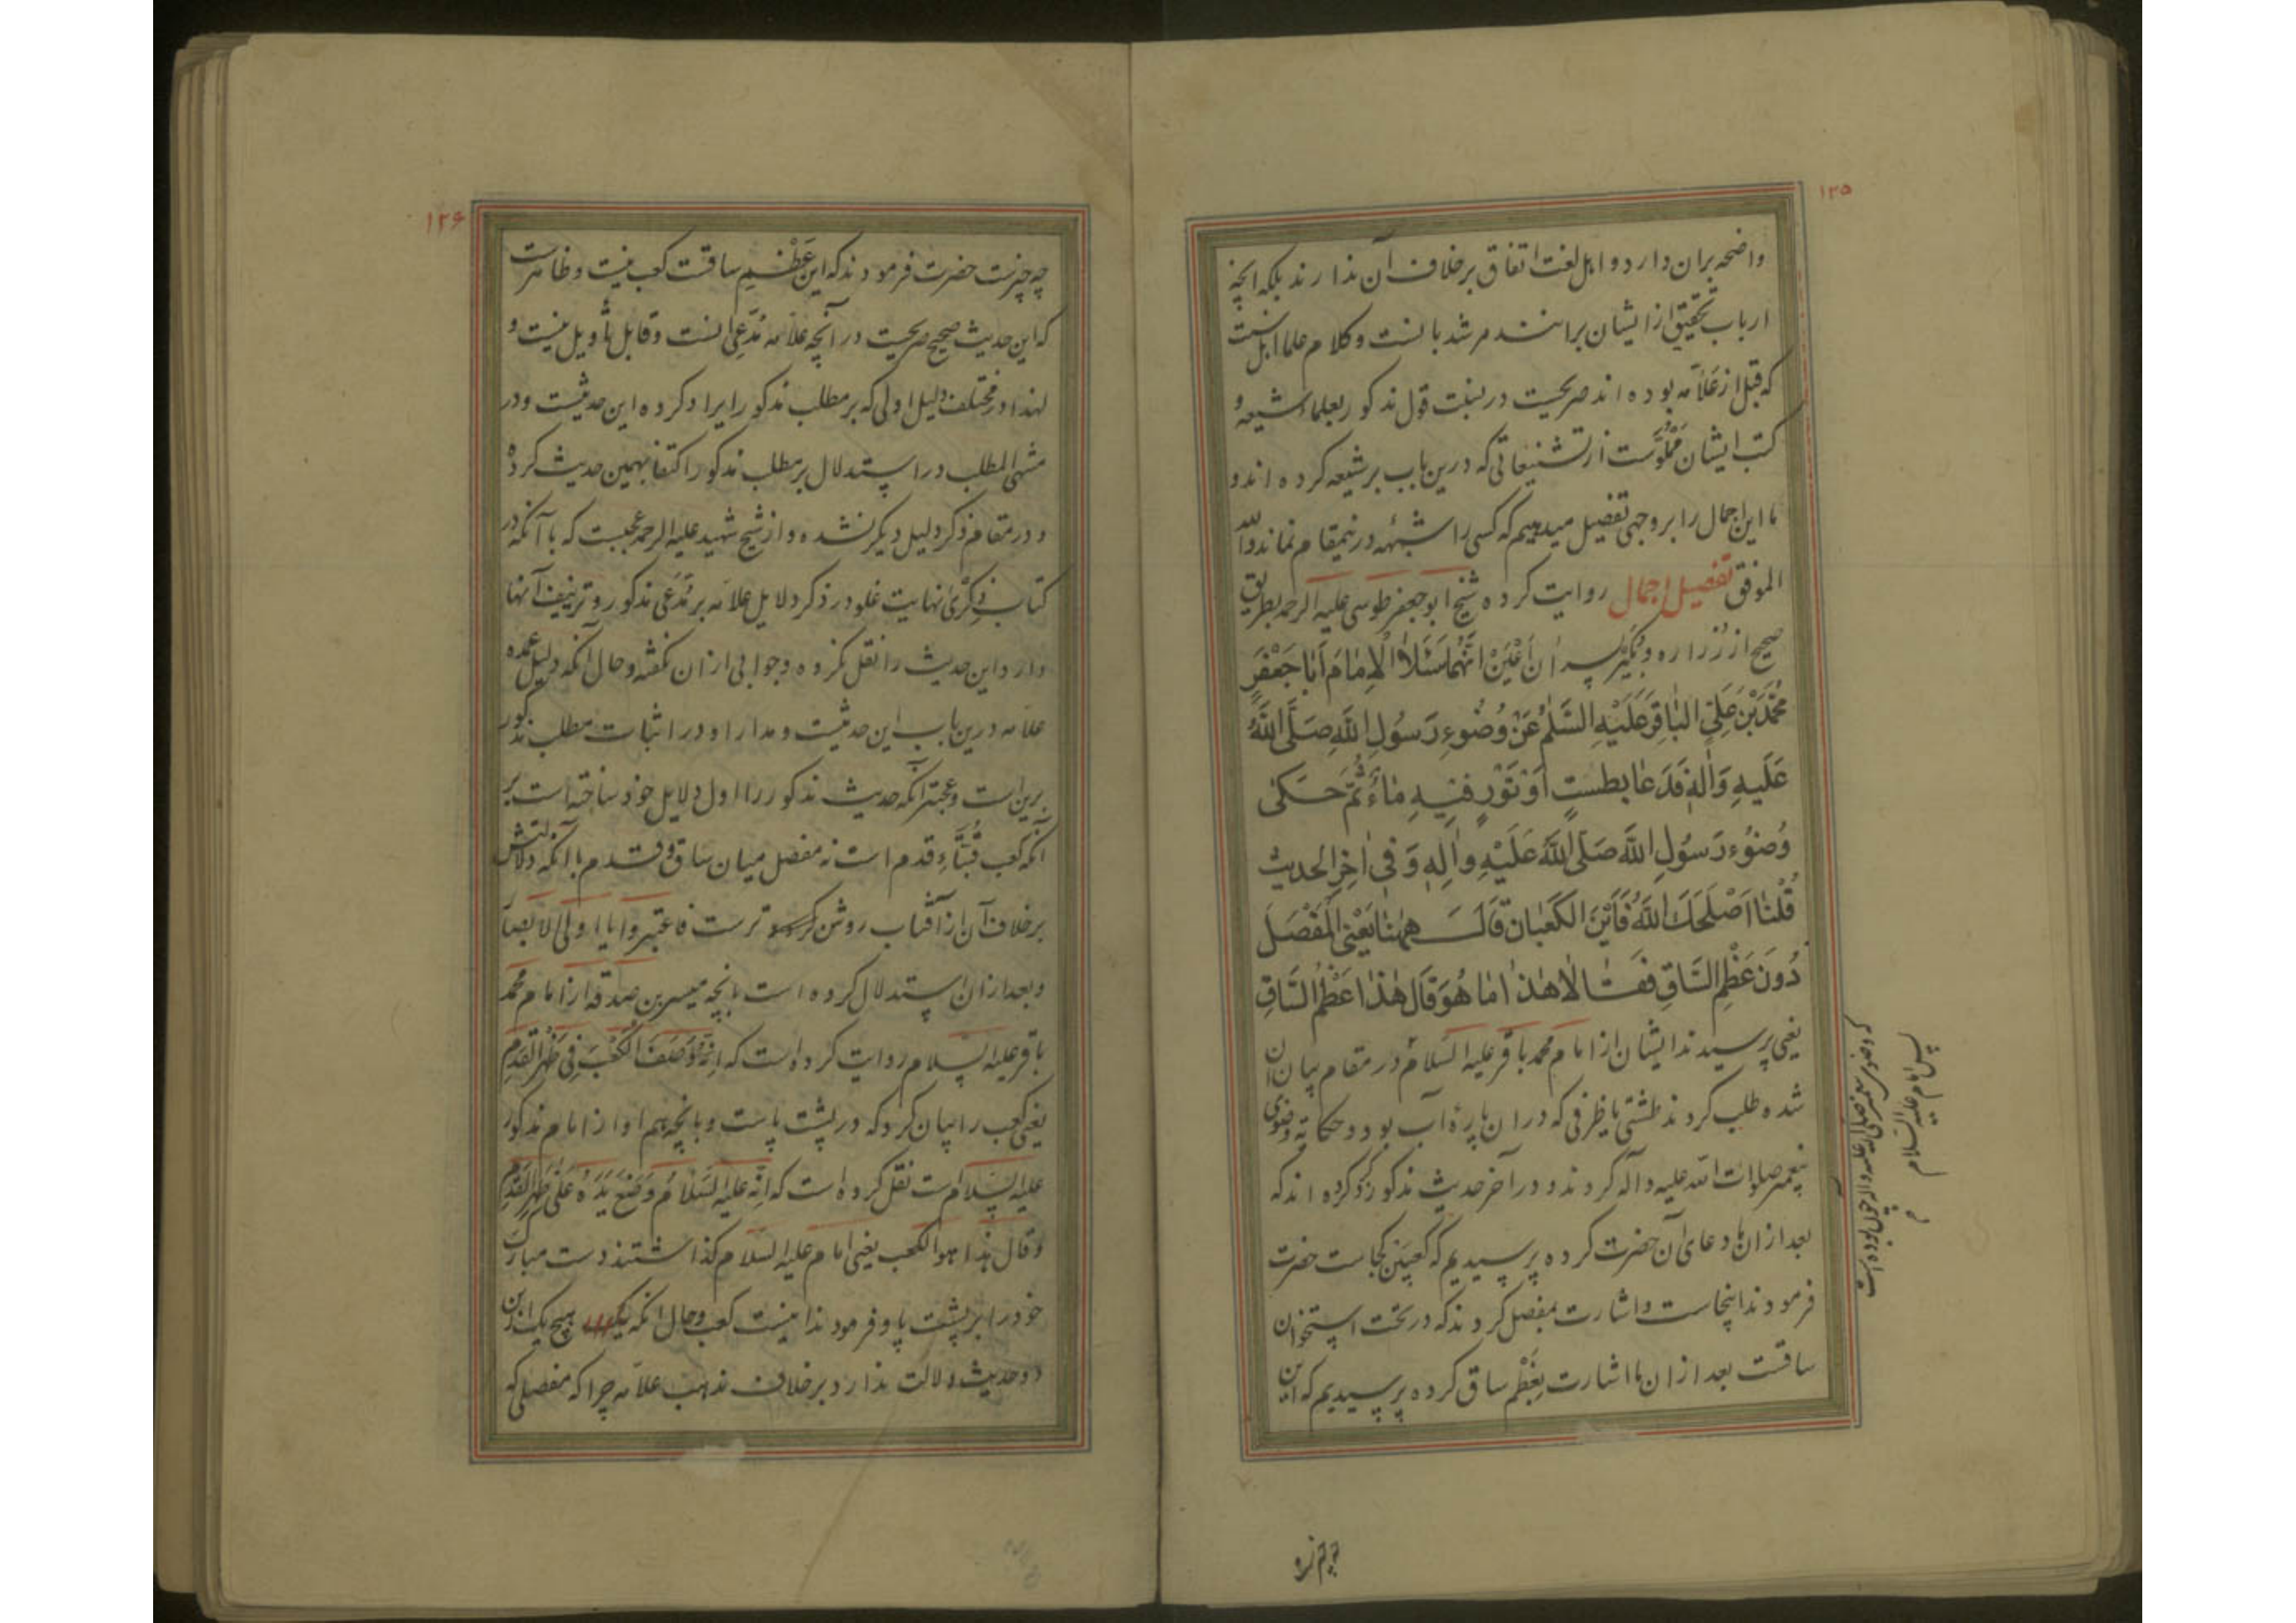 ۱۲۵
واضحه بران دارد و اهل لغت اتفاق بر خلاف آن ندارند بلکه انچه
ارباب تحقیق از ایشان برانند مرشد بانست و کلام علما اهل سنت
که قبل از علّامه بوده اند صریحست در نسبت قول مذکور بعلماء شیعه و
کتب ایشان مملوّست از تشنیعاتی که درین باب بر شیعه کرده اند و
ما این اجمال را بر وجهی تفصیل میدهیم که کسی را شبهه درینمقام نماند والله
الموفق تفصیل اجمال روایت کرده شیخ ابو جعفر طوسی علیه الرحمه بطریق
صحیح از زراره و بکیر پسران اَعْیَنْ انّهُما سَئَلاَ الْاِمٰامَ اَبٰا جَعْفَرٍ
مُحَمَّدَ بْنَ عَلِیٍّ البٰاقِرَ عَلَیْهِ السَّلٰمُ عَنْ وُضُوءِ رَسُولِ اللّٰهِ صَلَّی اللّٰهُ
عَلَیهِ وَاٰلِهِ فَدَعٰا بطستٍ اَوْ تَوْرٍ فیٖهِ مٰاءٌ ثُمَّ حَکیٰ
وُضُوءَ رَسُولِ اللّٰهِ صَلَّی اللّٰهُ عَلَیْهِ واٰلِهِ وَ فیٖ اٰخِرِ الحدیث
قُلْنٰا اَصْلَحَکَ اللّٰهُ فَاَیْنَ الکَعْبٰانِ قٰالَ هٰهُنٰا یَعْنِی المَفْصَلَ
دُونَ عَظْمِ السّٰاقِ فَقٰالاٰ هٰذٰا مٰا هُوَ قٰالَ هٰذٰا عَظْمُ السّٰاقِ
یعنی پرسیدند ایشان از امام محمد باقر علیه السلام در مقام بیان ان
شده طلب کردند طشتی یا ظرفی که در ان پارهٔ آب بود و حکایة وضوی
پیغمبر صلوات الله علیه و آله کردند و در آخر حدیث مذکور ذکر کرده اند که
بعد از ان ما دعای آن حضرت کرده پرسیدیم که کعبین کجاست حضرت
فرمودند اینجاست و اشارت بمفصل کردند که در تحت استخوان
ساقست بعد از ان ما اشارت بعَظْم ساق کرده پرسیدیم که این
که وضوی پیغمبر صلی الله علیه و آله چون بوده است
پس امام علیه السلام
۱۲۶
چه چیزست حضرت فرمودند که این عَظْم ساقست کعب نیست و ظاهرست
که این حدیث صحیح صریحست در آنچه علّامه مُدّعِی انست و قابل تأویل نیست و
لهذا در مختلف دلیل اولی که بر مطلب مذکور را ایراد کرده این حدیثست و در
منتهی المطلب در استدلال بر مطلب مذکور اکتفا بهمین حدیث کرده
و در مقام ذکر دلیل دیگر نشده و از شیخ شهید علیه الرحمه عجبست که با آنکه در
کتاب ذِکْریٰ نهایت غلو در ذکر دلایل علامه بر مُدّعی مذکور و تزئیف آنها
دارد این حدیث را نقل نکرده و جوابی از ان نگفته و حال آنکه دلیل عمده
علامه درین باب این حدیثست و مدار او در اثبات مطلب مذکور
برین است و عجبتر آنکه حدیث مذکور را اول دلایل خود ساخته است بر
آنکه کعب قُبّهٔ قدم است نه مفصل میان ساق و قدم با آنکه دلالتش
بر خلاف آن از آفتاب روشن ترست فاعتبروا یا اولی الابصار
و بعد از ان استدلال کرده است بانچه میسر بن صدقه از امام محمد
باقر علیه السلام روایت کرده است که اِنَّهُ وَصَفَ الکَعْبَ فِی ظَهْرِ القَدَمِ
یعنی کعب را بیان کرد که در پشت پاست و بانچه هم او از امام مذکور
علیه السلام ست نقل کرده است که اِنَّه علیه السلام وَضَعَ یَدَهُ عَلیٰ ظَهْرِ القَدَمِ
و قال هذا هو الکعب یعنی امام علیه السلام گذاشتند دست مبارک
خود را بر پشت پا و فرمودند اینست کعب و حال آنکه هیچ یک ازین
دو حدیث دلالت ندارد بر خلاف مذهب علامه چرا که مفصلی که